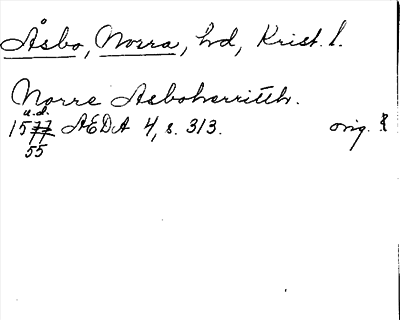 Åsbo, Norra, hd, Krist. l.
Norre Asboherritth.
u.d.
1577 AEDA 4, s. 313. orig. R
55